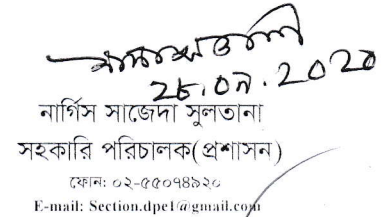 ২৮.০৭.২০২০
নার্গিস সাজেদা সুলতানা
সহকারি পরিচালক(প্রশাসন)
ফোন: ০২-৫৫০৭৪৯২০
E-mail: Section.dpe1@gmail.com